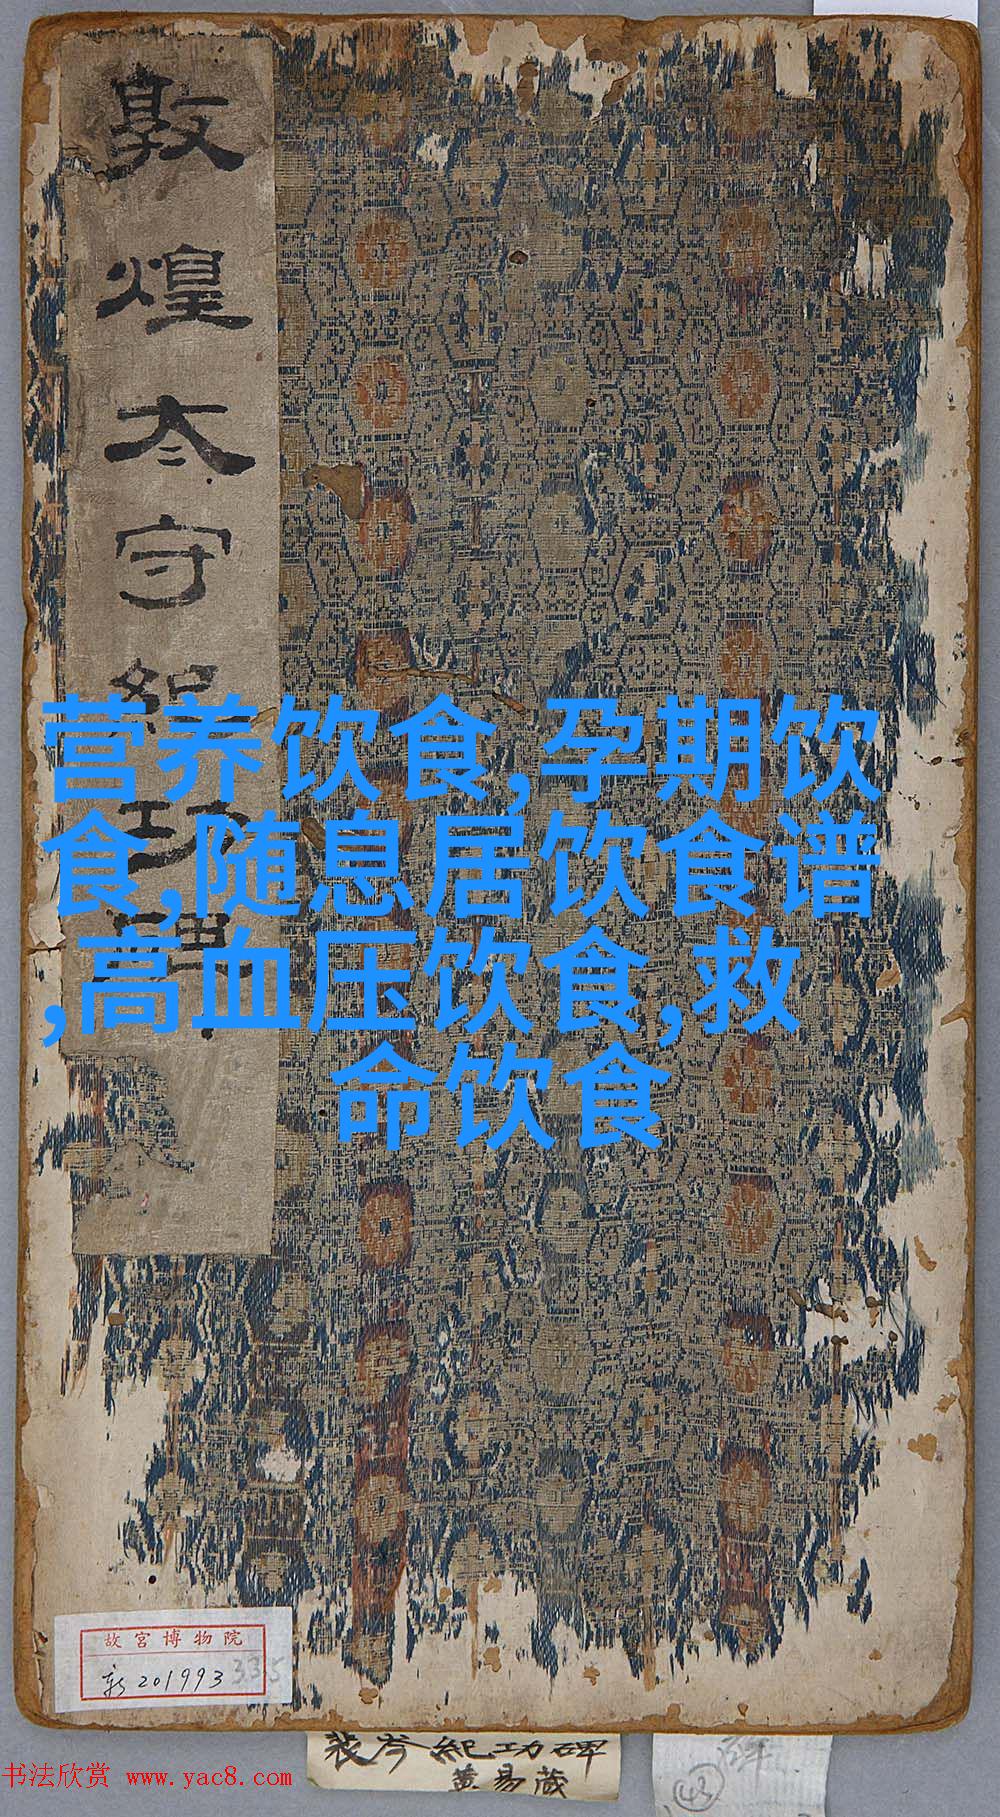 敦煌太守紀功碑
营养饮食,孕期饮
食,随息居饮食谱
,高血压饮食,救
命饮食
故宫博物院
新201993
335
裴岑紀功碑
黄易藏
书法欣赏 www.yac8.com
(43)